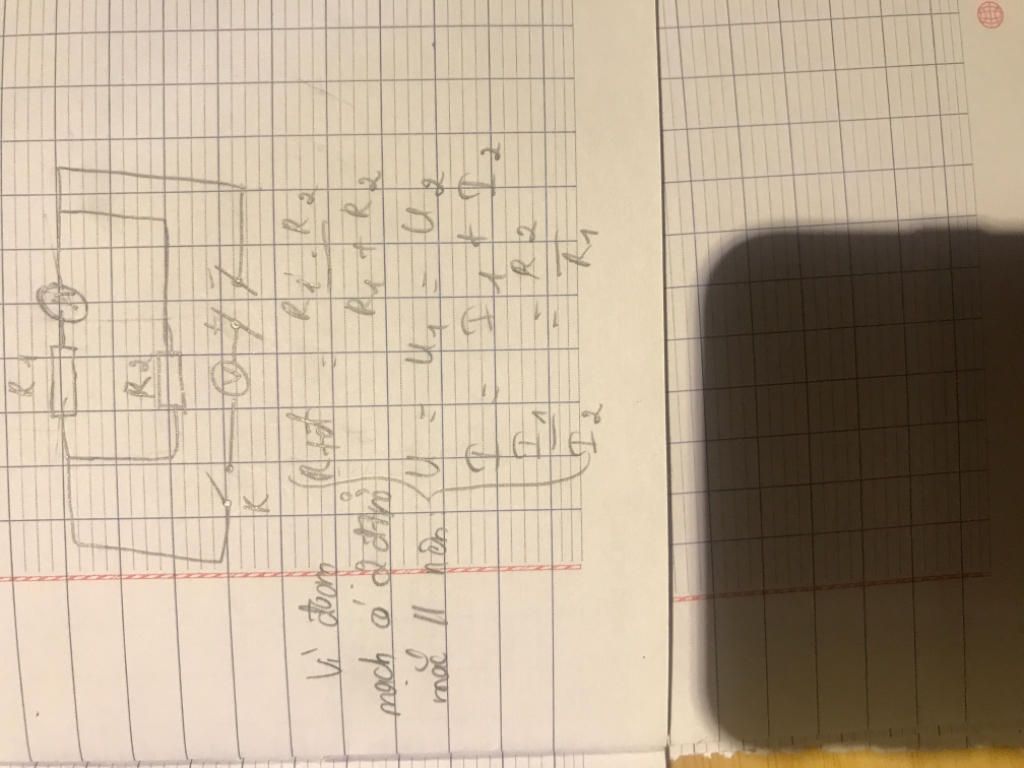 R1
A
R2
V
+ -
K
Vì đoạn
mạch có 2 điện
mắc // nên
Rtđ = R1 . R2
R1 + R2
U = U1 = U2
I = I1 + I2
I1 = R2
I2 R1